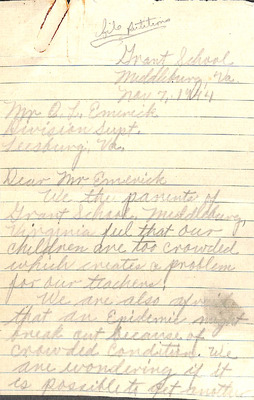 file petitions
Grant School
Middleburg, Va.
Nov 7, 1944
Mr O. L. Emerick
Division Supt.
Leesburg, Va.
Dear Mr Emerick
We the parents of
Grant School, Middleburg,
Virginia feel that our
children are too crowded
which creates a problem
for our teachers.
We are also afraid
that an Epidemic might
break out because of
crowded condition. We
are wondering if it
is possible to get another